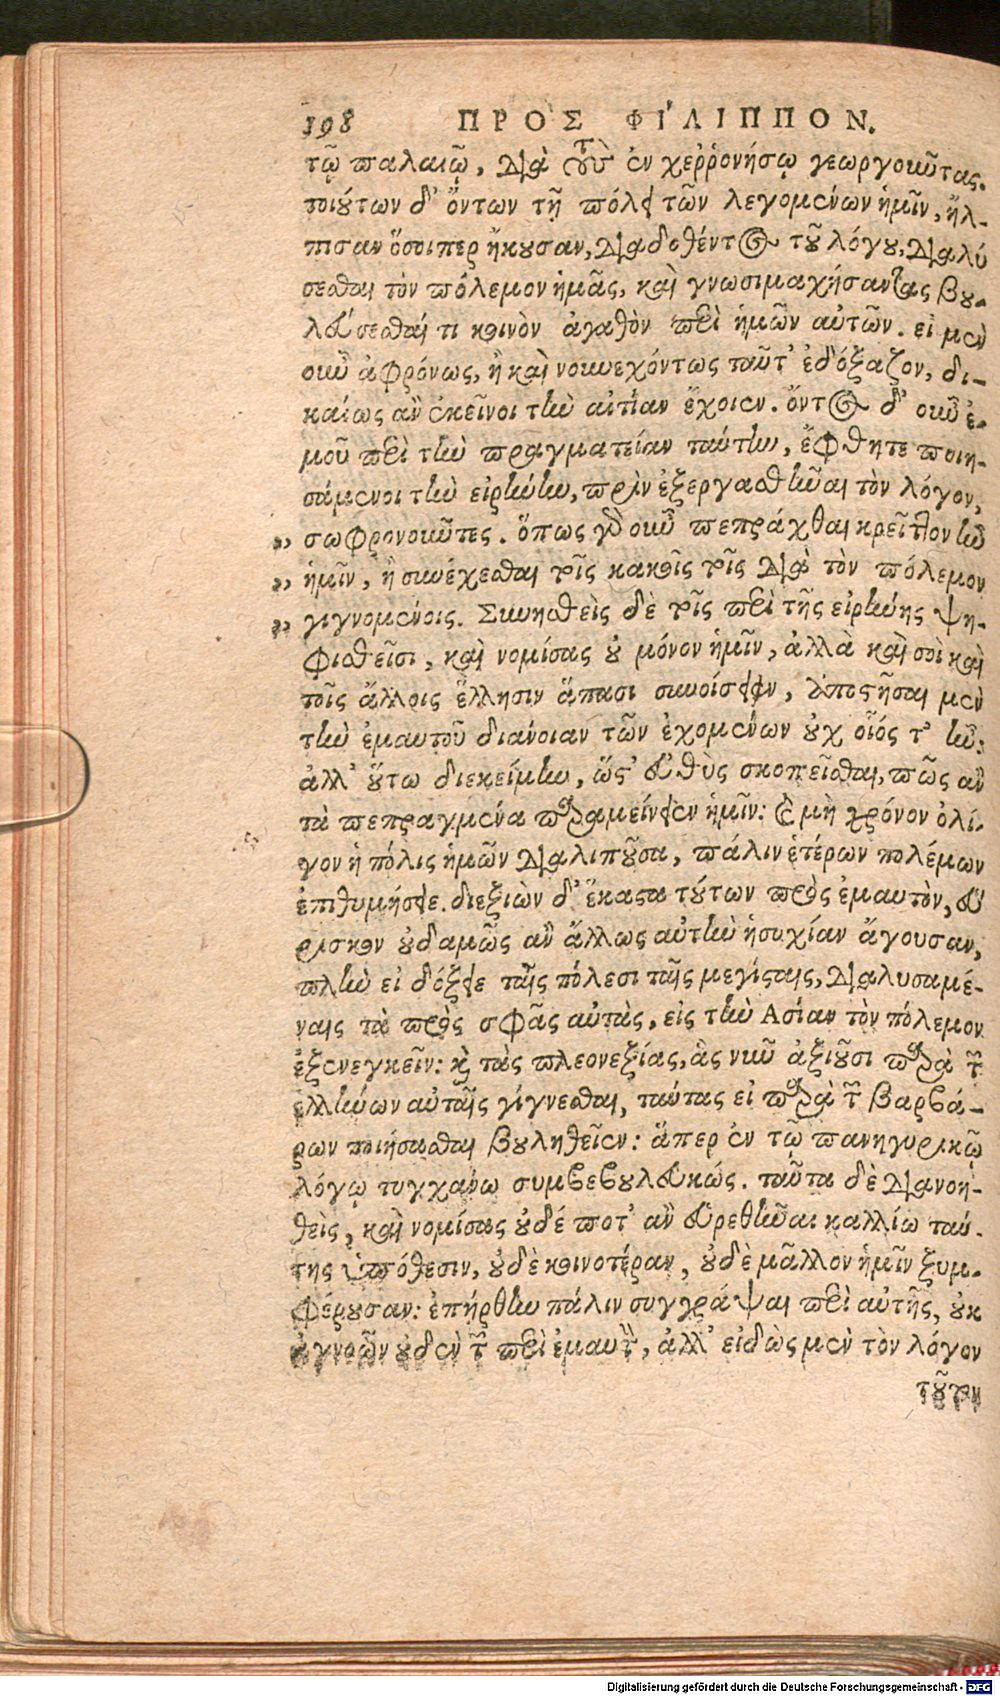 198 ΠΡῸΣ ΦΊΛΙΠΠΟΝ.
τῷ παλαιῷ, διὰ τοὺς ἐν χεῤῥονήσῳ γεωργοῦντας.
τοιούτων δ' ὄντων τῇ πόλει τῶν λεγομένων ἡμῖν, ἤλ-
πισαν ὅσοιπερ ἤκουσαν, διαδοθέντος τοῦ λόγου, διαλύ
σεσθαι τὸν πόλεμον ἡμᾶς, καὶ γνωσιμαχήσαντας βου-
λεύσεσθαί τι κοινὸν ἀγαθὸν περὶ ἡμῶν αὐτῶν. εἰ μὲν
οὖν ἀφρόνως, ἢ καὶ νουνεχόντως ταῦτ' ἐδόξαζον, δι-
καίως ἂν ἐκεῖνοι τὴν αἰτίαν ἔχοιεν. ὄντος δ' οὖν ἐ-
μοῦ περὶ τὴν πραγματείαν ταύτην, ἔφθητε ποιη-
σάμενοι τὴν εἰρήνην, πρὶν ἐξεργασθῆναι τὸν λόγον,
„ σωφρονοῦντες. ὅπως γὰρ οὖν πεπράχθαι κρεῖττον ἦν
„ ἡμῖν, ἢ συνέχεσθαι τοῖς κακοῖς τοῖς διὰ τὸν πόλεμον
„ γιγνομένοις. Συνησθεὶς δὲ τοῖς περὶ τῆς εἰρήνης ψη-
φισθεῖσι, καὶ νομίσας οὐ μόνον ἡμῖν, ἀλλὰ καὶ σοὶ καὶ
τοῖς ἄλλοις ἕλλησιν ἅπασι συνοίσειν, ἀποστῆσαι μὲν
τὴν ἐμαυτοῦ διάνοιαν τῶν ἐχομένων οὐχ οἷός τ' ἦν:
ἀλλ' οὕτω διεκείμην, ὥστ' εὐθὺς σκοπεῖσθαι, πῶς ἂν
τὰ πεπραγμένα παραμείνειεν ἡμῖν: καὶ μὴ χρόνον ὀλί-
γον ἡ πόλις ἡμῶν διαλιποῦσα, πάλιν ἑτέρων πολέμων
ἐπιθυμήσειε. διεξιὼν δ' ἕκαστα τούτων πρὸς ἐμαυτὸν, εὕ
ρισκον οὐδαμῶς ἂν ἄλλως αὐτὴν ἡσυχίαν ἄγουσαν,
πλὴν εἰ δόξειε ταῖς πόλεσι ταῖς μεγίσταις, διαλυσαμέ-
ναις τὰ πρὸς σφᾶς αὐτὰς, εἰς τὴν Ασίαν τὸν πόλεμον
ἐξενεγκεῖν: καὶ τὰς πλεονεξίας, ἃς νῦν ἀξιοῦσι παρὰ τῶν
ἑλλήνων αὐταῖς γίγνεσθαι, ταύτας εἰ παρὰ τῶν βαρβά-
ρων ποιήσασθαι βουληθεῖεν: ἅπερ ἐν τῷ πανηγυρικῷ
λόγῳ τυγχάνω συμβεβουλευκώς. ταῦτα δὲ διανοη-
θεὶς, καὶ νομίσας οὐδέ ποτ' ἂν εὑρεθῆναι καλλίω ταύ-
της ὑπόθεσιν, οὐδὲ κοινοτέραν, οὐδὲ μᾶλλον ἡμῖν ξυμ-
φέρουσαν: ἐπήρθην πάλιν συγγράψαι περὶ αὐτῆς, οὐκ
ἀγνοῶν οὐδὲν τῶν περὶ ἐμαυτὸν, ἀλλ' εἰδὼς μὲν τὸν λόγον
τοῦτον
Digitalisierung gefördert durch die Deutsche Forschungsgemeinschaft - DFG